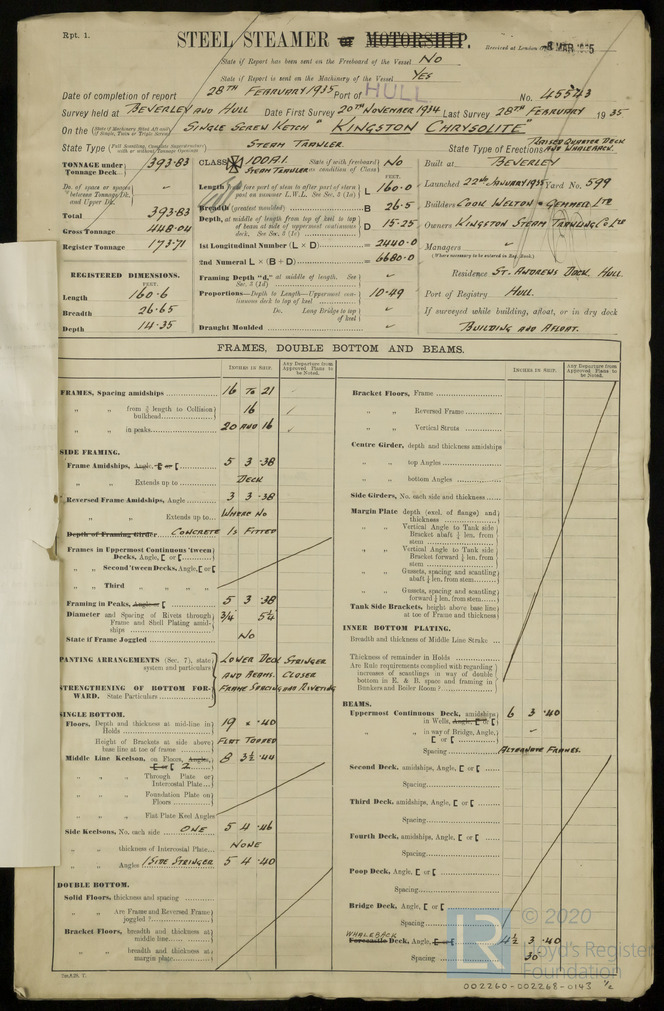 Rpt. 1.
STEEL STEAMER or MOTORSHIP.
Received at London
MAR 1935
State if Report has been sent on the Freeboard of the Vessel No
State if Report is sent on the Machinery of the Vessel Yes
Date of completion of report 28th February 1935 Port of HULL No. 45543
Survey held at Beverley and Hull Date First Survey 20th November 1934 Last Survey 28th February 1935
On the Single Screw Ketch "Kingston Chrysolite"
State Type Steam Trawler State Type of Erections Raised Quarter Deck and Whaleback.
TONNAGE under Tonnage Deck 393.83
Do. of space or spaces between Tonnage Dk. and Upper Dk.
Total 393.83
Gross Tonnage 448.04
Register Tonnage 173.71
REGISTERED DIMENSIONS.
FEET.
Length 160.6
Breadth 26.65
Depth 14.35
CLASS 100A1. Steam Trawler State if with freeboard as condition of Class No
Length L 160.0
Breadth (greatest moulded) B 26.5
Depth, at middle of length from top of keel to top of beam at side of uppermost continuous deck. See Sec. 3 (1c) D 15.25
1st Longitudinal Number (L × D) = 2440.0
2nd Numeral L × (B + D) = 6680.0
Framing Depth "d," at middle of length. See Sec. 3 (1d)
Proportions—Depth to Length—Uppermost continuous deck to top of keel 10.49
Do. Long Bridge to top of keel
Draught Moulded
Built at Beverley
Launched 22nd January 1935 Yard No. 599
Builders Cook Welton & Gemmell Ltd
Owners Kingston Steam Trawling Co Ltd
Managers
(Where necessary to be entered in Reg. Book.)
Residence St. Andrews Dock Hull.
Port of Registry Hull.
If surveyed while building, afloat, or in dry dock
Building and Afloat.
FRAMES, DOUBLE BOTTOM AND BEAMS.
INCHES IN SHIP.
Any Departure from Approved Plans to be Noted.
FRAMES, Spacing amidships 16 to 21
" " from 1/5 length to Collision bulkhead 16
" " in peaks 20 and 16
SIDE FRAMING.
Frame Amidships, Angle, [ or [ 5 3 .38
" " Extends up to Deck
Reversed Frame Amidships, Angle 3 3 .38
" " Extends up to Where No
Depth of Framing Girder Concrete is Fitted
Frames in Uppermost Continuous 'tween Decks, Angle, [ or [
" " Second 'tween Decks, Angle, [ or [
" " Third " " " "
Framing in Peaks, Angle or [ 5 3 .38
Diameter and Spacing of Rivets through Frame and Shell Plating amidships 3/4 5 1/4
State if Frame Joggled No
PANTING ARRANGEMENTS (Sec. 7), state system and particulars Lower Deck Stringer and Beams. Closer
STRENGTHENING OF BOTTOM FORWARD. State Particulars Frame Spacing and Riveting
SINGLE BOTTOM.
Floors, Depth and thickness at mid-line in Holds 19 × .40
Height of Brackets at side above base line at toe of frame Flat Topped
Middle Line Keelson, on Floors, Angle, [ or [ 2 8 3 1/2 .44
" " Through Plate or Intercostal Plate
" " Foundation Plate on Floors
" " Flat Plate Keel Angles
Side Keelsons, No. each side One 5 4 .46
" " thickness of Intercostal Plate None
" " Angles 1 Side Stringer 5 4 .40
DOUBLE BOTTOM.
Solid Floors, thickness and spacing
" " Are Frame and Reversed Frame joggled?
Bracket Floors, breadth and thickness at middle line
" " breadth and thickness at margin plate
INCHES IN SHIP.
Any Departure from Approved Plans to be Noted.
Bracket Floors, Frame
" " Reversed Frame
" " Vertical Struts
Centre Girder, depth and thickness amidships
" " top Angles
" " bottom Angles
Side Girders, No. each side and thickness
Margin Plate depth (excl. of flange) and thickness
" " Vertical Angle to Tank side Bracket abaft 1/4 len. from stem
" " Vertical Angle to Tank side Bracket forward 1/4 len. from stem
" " Gussets, spacing and scantling abaft 1/4 len. from stem
" " Gussets, spacing and scantling forward 1/4 len. from stem
Tank Side Brackets, height above base line at toe of Frame and thickness
INNER BOTTOM PLATING.
Breadth and thickness of Middle Line Strake
Thickness of remainder in Holds
Are Rule requirements complied with regarding increases of scantlings in way of double bottom in E. & B. space and framing in Bunkers and Boiler Room?
BEAMS.
Uppermost Continuous Deck, amidships in Wells, Angle, [ or [ 6 3 .40
" " in way of Bridge, Angle, [ or [
Spacing Alternate Frames.
Second Deck, amidships, Angle, [ or [
Spacing
Third Deck, amidships, Angle, [ or [
Spacing
Fourth Deck, amidships, Angle, [ or [
Spacing
Poop Deck, Angle, [ or [
Spacing
Bridge Deck, Angle, [ or [
Spacing
Whaleback
Forecastle Deck, Angle, [ or [ 4 1/2 3 .40
Spacing 30"
LR © 2020
Lloyd's Register
Foundation
002260-002268-0143 1/2